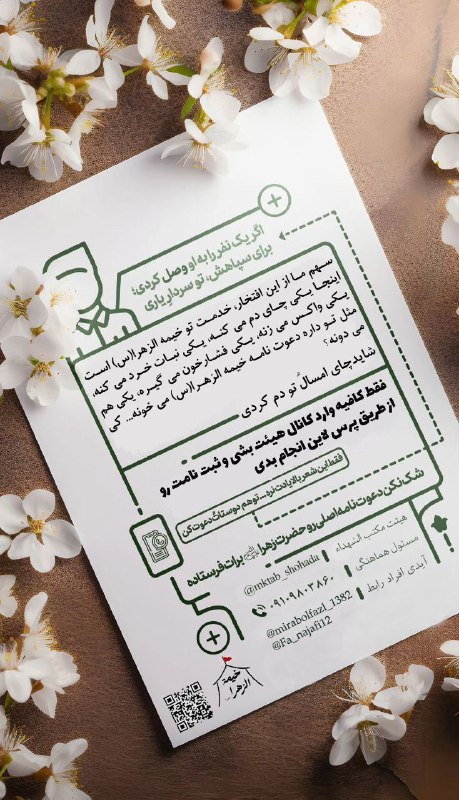 اگر یک نفر را به او وصل کردی؛
برای سپاهش، تو سردار یاری
سـهم مـا از این افتخار، خدمـت تو خیمه الزهرا(س) است
اینجـا یـکی چـای دم می کنـه، یـکی نبـات خـرد می کنه،
یـکی واکـس می زنه، یـکی فشـارخون می گیـره، یکی هم
مثل تـو داره دعوت نامـه خیمه الزهـرا(س) می خونه... کی
می دونه؟
شاید چای امسالُ تو دم کردی
فقط کافیه وارد کانال هیئت بشی و ثبت نامت رو
از طریق پرس لاین انجام بدی
فقط این شعر بالا یادت نره... تو هم دوستاتُ دعوت کن
شک نکن دعوت نامه اصلی رو حضرت زهرا برات فرستاده
هیئت مکتب الشهداء | @mktab_shohada
مسئول هماهنگی | ۰۹۱۰۹۸۰۳۸۶۰
آیدی افراد رابط | @mirabolfazl_1382
@Fa_najafi12
خیمة الزهرا